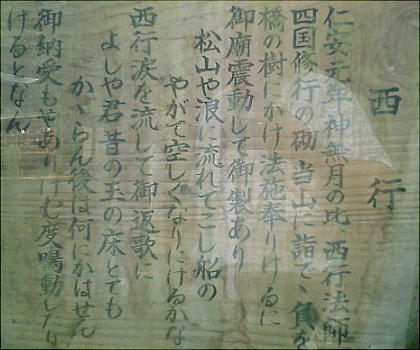 西行
仁安元年神無月の比西行法師
四国修行の砌当山に詣でゝ負を
橋の樹にかけ法施奉りけるに
御廟震動して御製あり
松山や浪に流れてこし船の
やがて空しくなりにけるかな
西行涙を流して御返歌に
よしや君昔の玉の床とても
かゝらん後は何にかはせん
御納受もやありけむ度鳴動したり
けるとなん